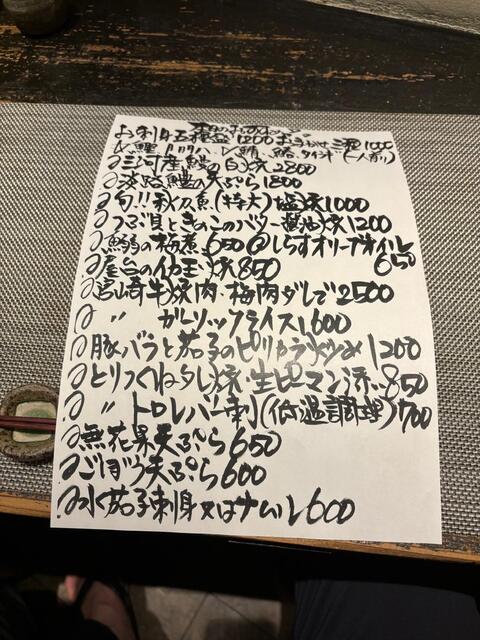 お刺身五種盛1200 お手がけ三種1000
(一人前)
三河産鰻白焼2800
淡路鱧の天ぷら1800
旬!!秋刀魚(特大)塩焼1000
つぶ貝ときのこのバター醤油焼1200
の梅煮650 しらすオリーブオイル
650
屋台のイカ玉焼850
宮崎牛焼肉・梅肉ダレで2500
〃 ガーリックライス1,600
豚バラと茄子のピリカラ炒め1200
とりつくねタレ焼・生ピーマン添850
〃 トロレバー刺(低温調理)700
無花果天ぷら650
ごぼう天ぷら600
水茄子刺身又はナムル600